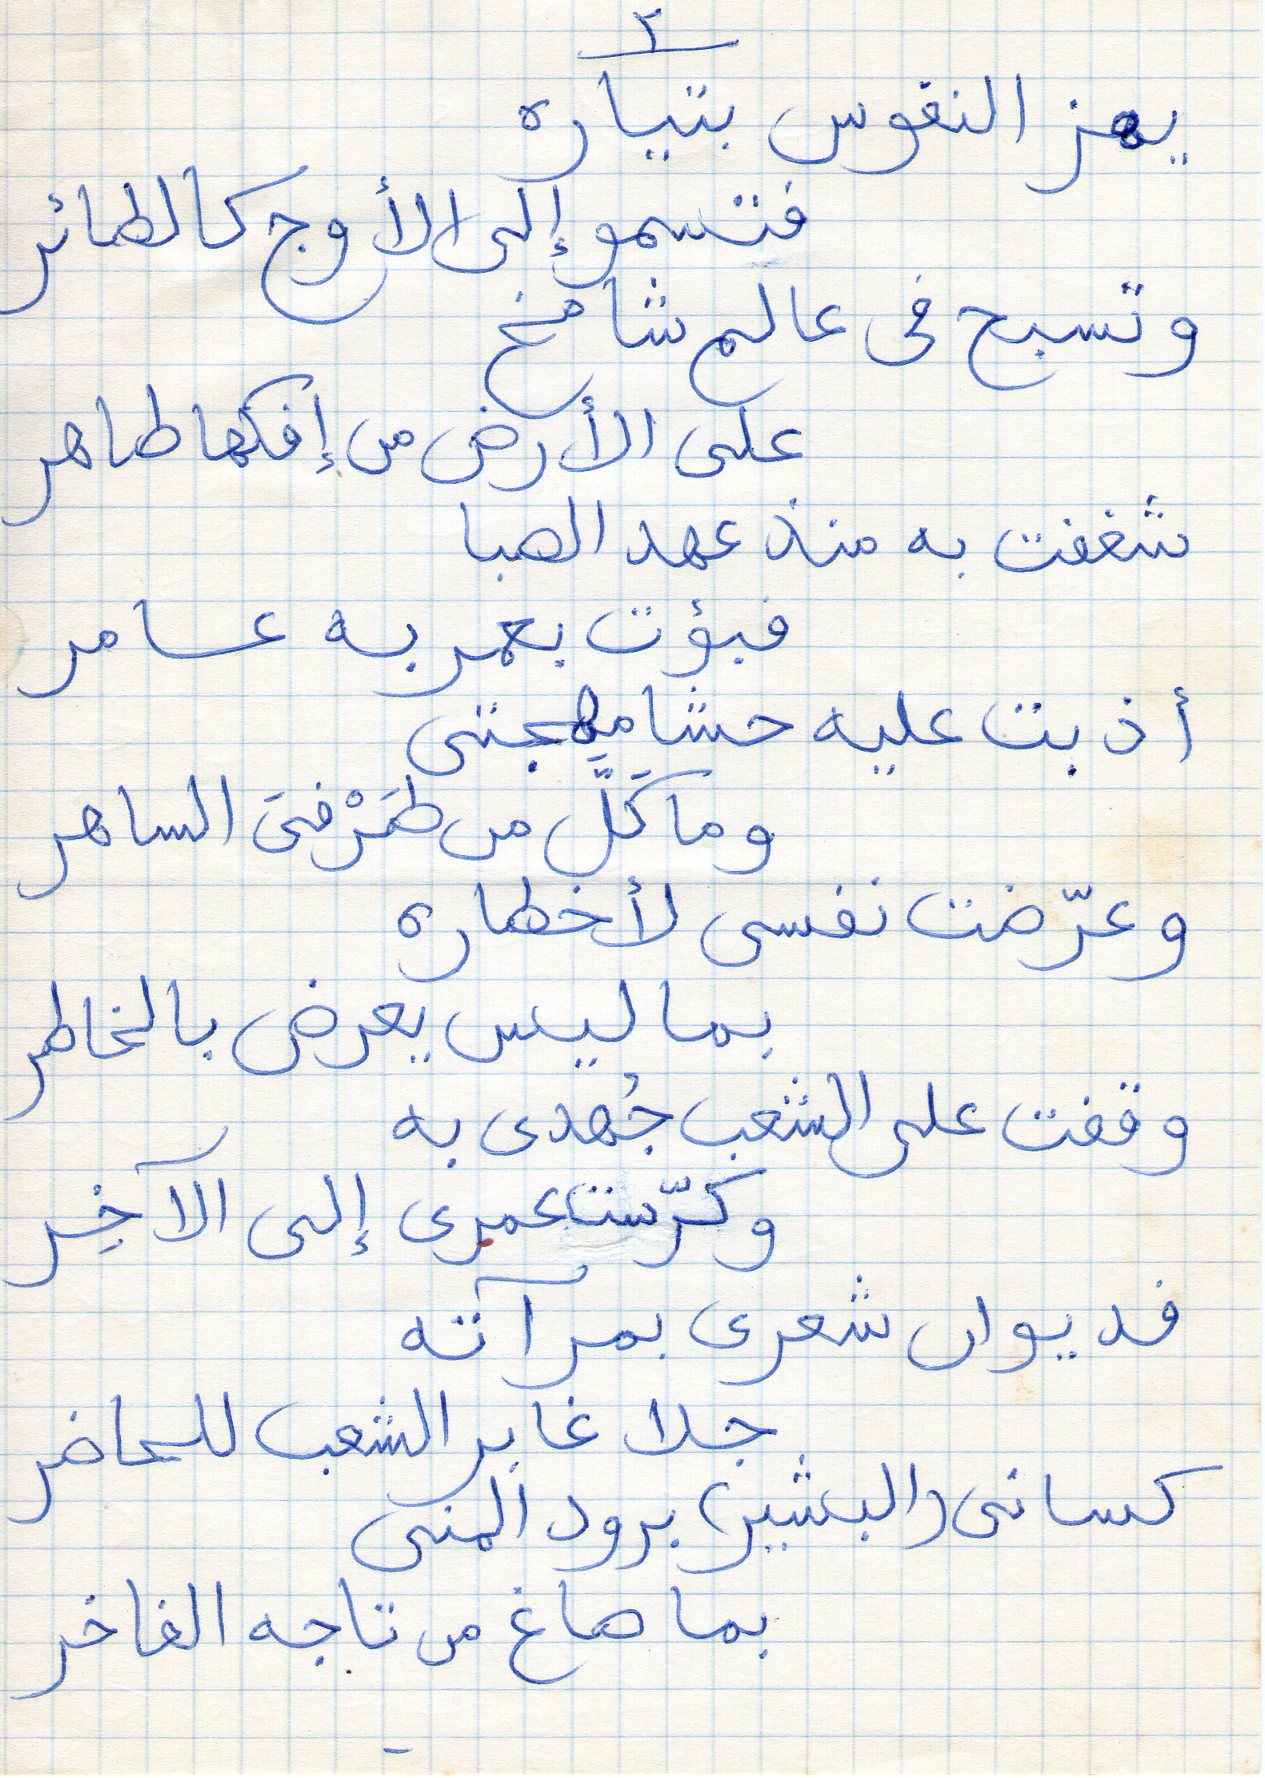 ٢
يهز النفوس بتياره
فتسمو إلى الأوج كالطائر
وتسبح فى عالم شامخ
على الأرض من إفكها طاهر
شغفت به منذ عهد الصبا
فبؤت بعمر به عامر
أذبت عليه حشا مهجتى
وما كَلَّ من طَرْفىَ الساهر
وعرّضت نفسى لأخطاره
بما ليس يعرض بالخاطر
وقفت على الشعب جُهدى به
وكرّست عمرى إلى الآخِر
فديوان شعرى بمرآته
جلا غابر الشعب للحاضر
كسانى (البشير) برود المنى
بما صاغ من تاجه الفاخر